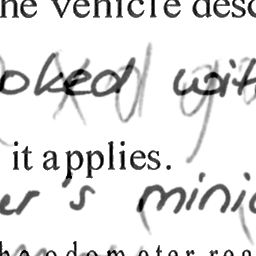 he vehicle desc
oked with
it applies.
er's mini
he odometer rea